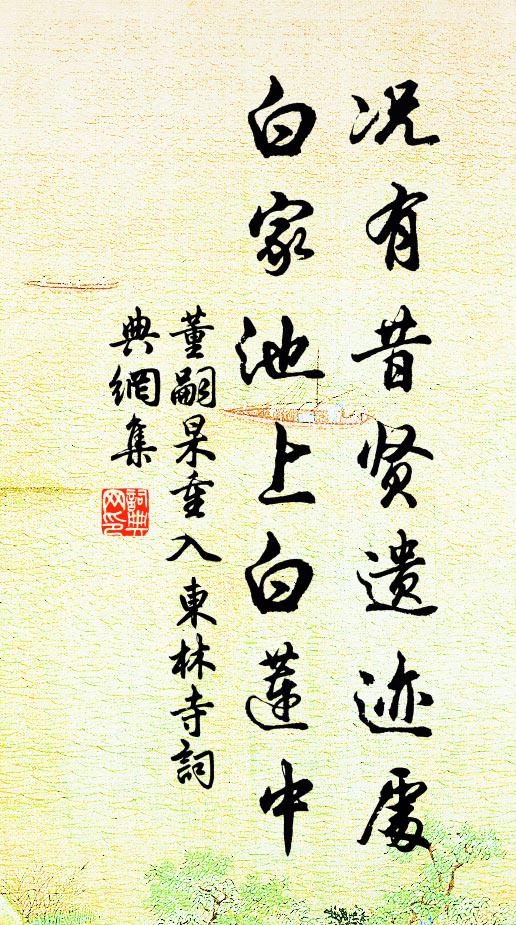 况有昔贤遗迹處
白家池上白蓮中
董嗣杲重入東林寺詞
典網集
詞典網印